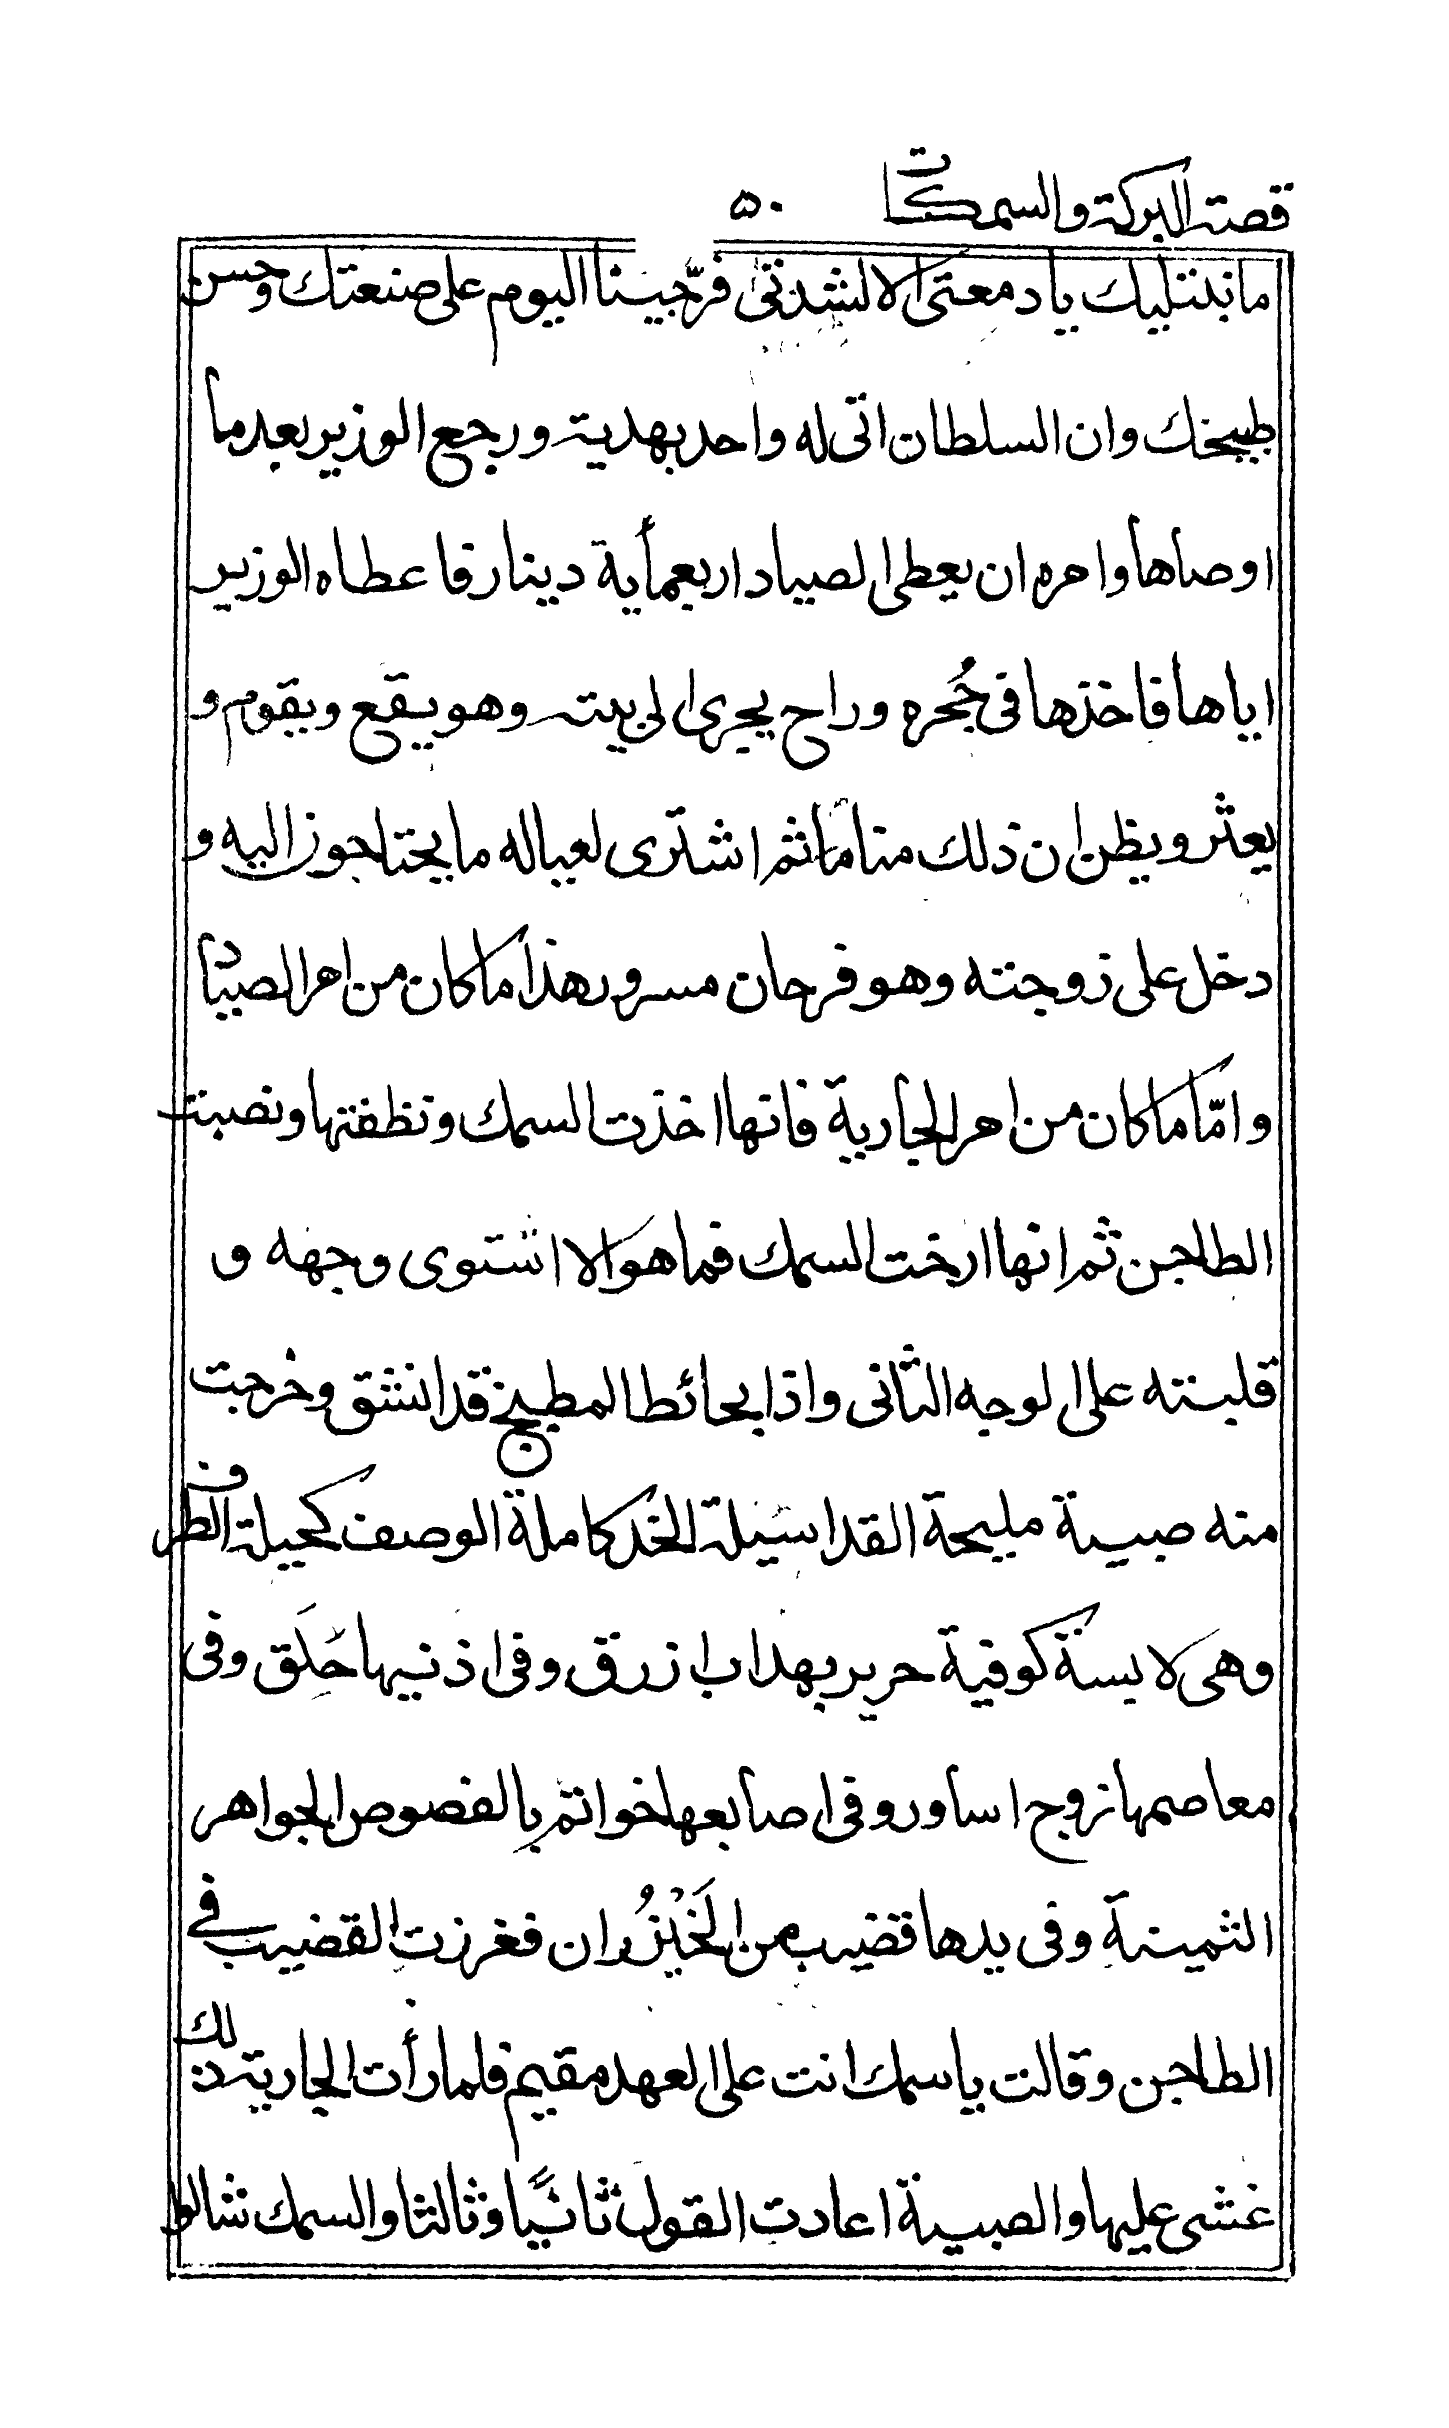 قصة البركة والسمكات ٥٠
ما بدنتليك يا دمعتى الا لشدتى فرّجينا اليوم على صنعتك وحسن
طبيخك وان السلطان اتى له واحد بهدية ورجع الوزير بعد ما
اوصاها وامره ان يعطى الصياد اربعمأية دينار فاعطاه الوزير
اياها فاخذها فى حُجره وراح يجرى الى بيته وهو يقع ويقوم و
يعثر ويظن ان ذلك مناما ثم اشترى لعياله ما يحتاجوز اليه و
دخل على زوجته وهو فرحان مسرور هذا ما كان من امر الصياد
وامّا ما كان من امر الجارية فانها اخذت السمك ونظفتها ونصبت
الطاجن ثم انها ارخت السمك فما هو الا اشتوى وجهه و
قلبته على الوجه الثانى واذا بحائط المطبخ قد انشق وخرجت
منه صبية مليحة القد اسيلة الخد كاملة الوصف كحيلة الطرف
وهى لابسة كوفية حرير بهداب ازرق وفى اذنيها حَلَق وفى
معاصمها زوج اساور وفى اصابعها خواتم بالفصوص الجواهر
الثمينة وفى يدها قضيب من الخَيْزُران فغرزت القضيب فى
الطاجن وقالت يا سمك انت على العهد مقيم فلما رأت الجارية ذلك
غشى عليها والصبية اعادت القول ثانيًا وثالثا والسمك شالوا